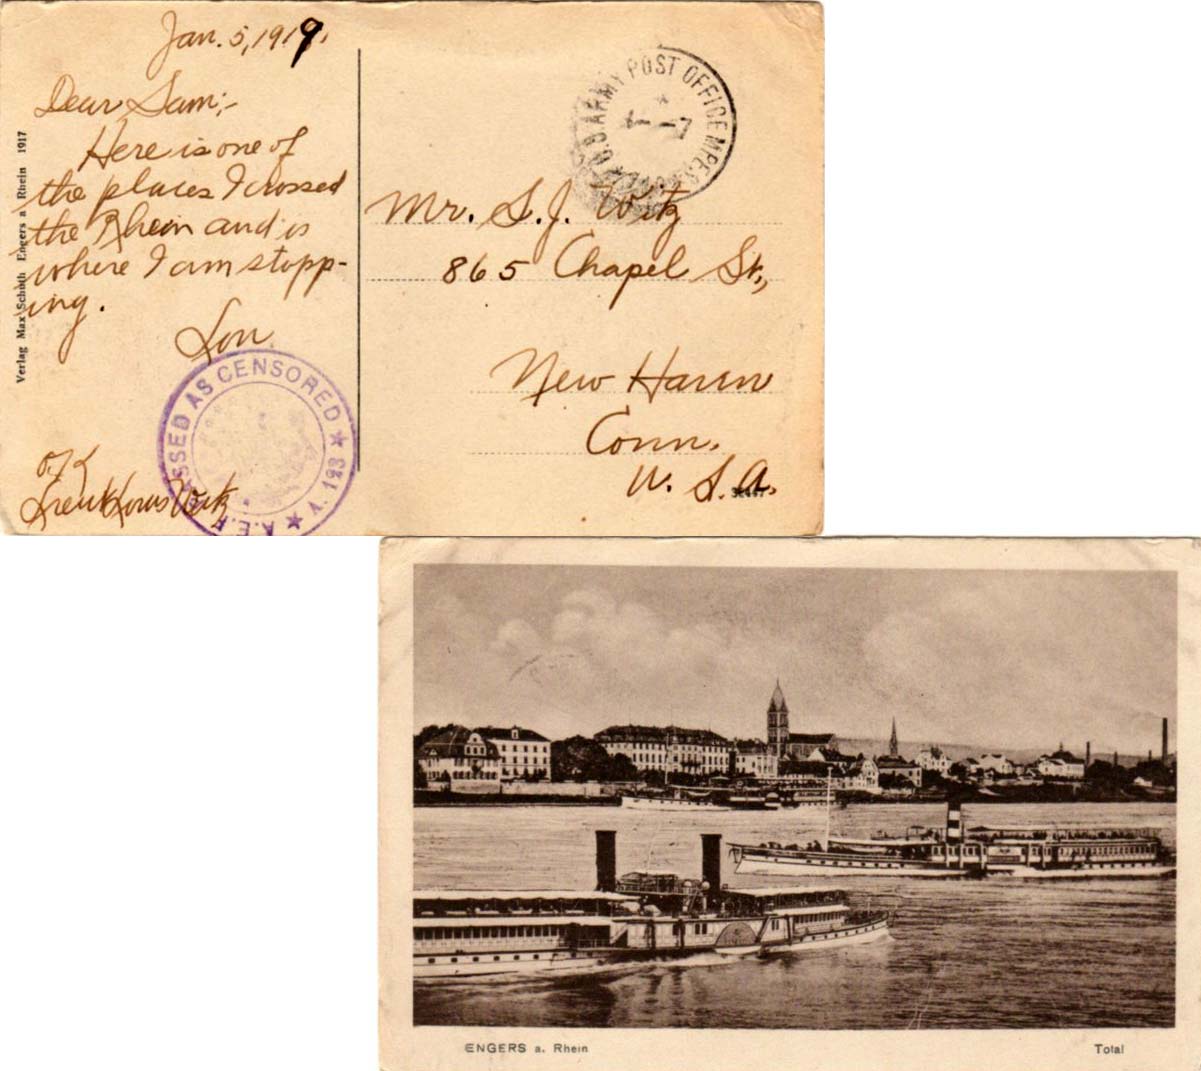 Jan. 5, 1919.
Dear Sam:-
Here is one of
the places I crossed
the Rhein and is
where I am stopp-
ing.
Lou.
O.K.
Lieut Louis Witz
PASSED AS CENSORED ★ 183 ★ A.E.F.
Verlag Max Schüth Engers a Rhein 1917
U.S ARMY POST OFFICE M.P.E.S.
Mr. S. J. Witz
865 Chapel St.,
New Haven
Conn.
U. S. A.
ENGERS a. Rhein
Total